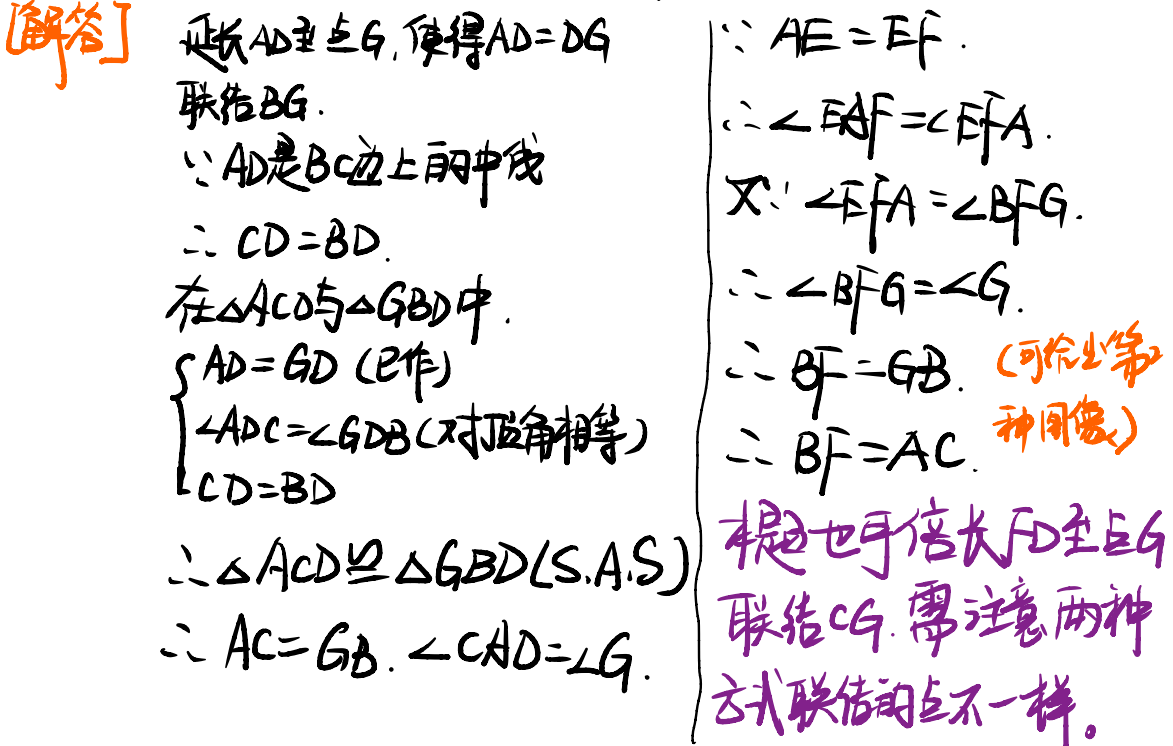 [解答]
延长AD至点G,使得AD=DG
联结BG.
∵AD是BC边上的中线
∴CD=BD.
在△ACD与△GBD中.
AD=GD(已作)
∠ADC=∠GDB(对顶角相等)
CD=BD
∴△ACD≌△GBD(S.A.S)
∴AC=GB.∠CAD=∠G.
∵AE=EF.
∴∠EAF=∠EFA.
又∵∠EFA=∠BFG.
∴∠BFG=∠G.
∴BF=GB.
(可给出第2
种图像)
∴BF=AC.
本题也可倍长FD至点G
联结CG.需注意两种
方式联结的点不一样。